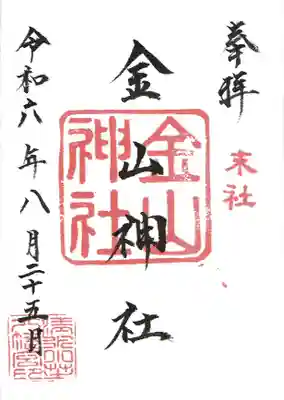 奉拝
末社
金山神社
金山神社
令和六年八月二十五日